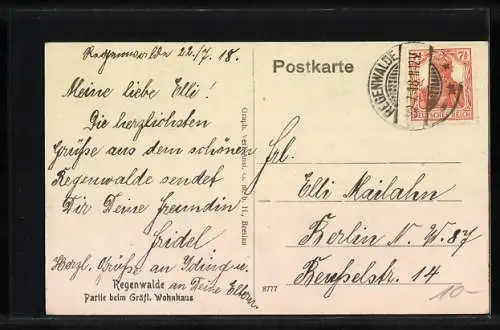 Regenwalde 22./7. 18.
Meine liebe Elli!
Die herzlichsten
Grüße aus dem schönen
Regenwalde sendet
Dir Deine Freundin
Fridel
Herzl. Grüße an u.
an Deine Eltern.
Regenwalde
Partie beim Gräfl. Wohnhaus
Graph. Verl.-Anst. G. m. b. H., Breslau
8777
Postkarte
REGENWALDE
7½
DEUTSCHES REICH
Frl.
Elli Mailahn
Berlin N. W. 87
Beusselstr. 14
10-